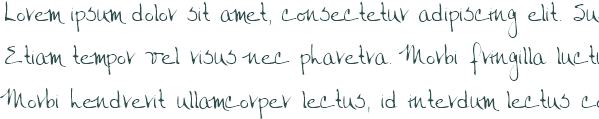 Lorem ipsum dolor sit amet, consectetur adipiscing elit. Su
Etiam tempor vel risus nec pharetra. Morbi fringilla luctu
Morbi hendrerit ullamcorper lectus, id interdum lectus co